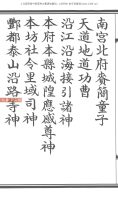 南宮北府賫簡童子
天道地道功曹
沿江沿海接引諸神
本府本縣城隍應感尊神
本坊社令里域司神
酆都泰山沿路等神